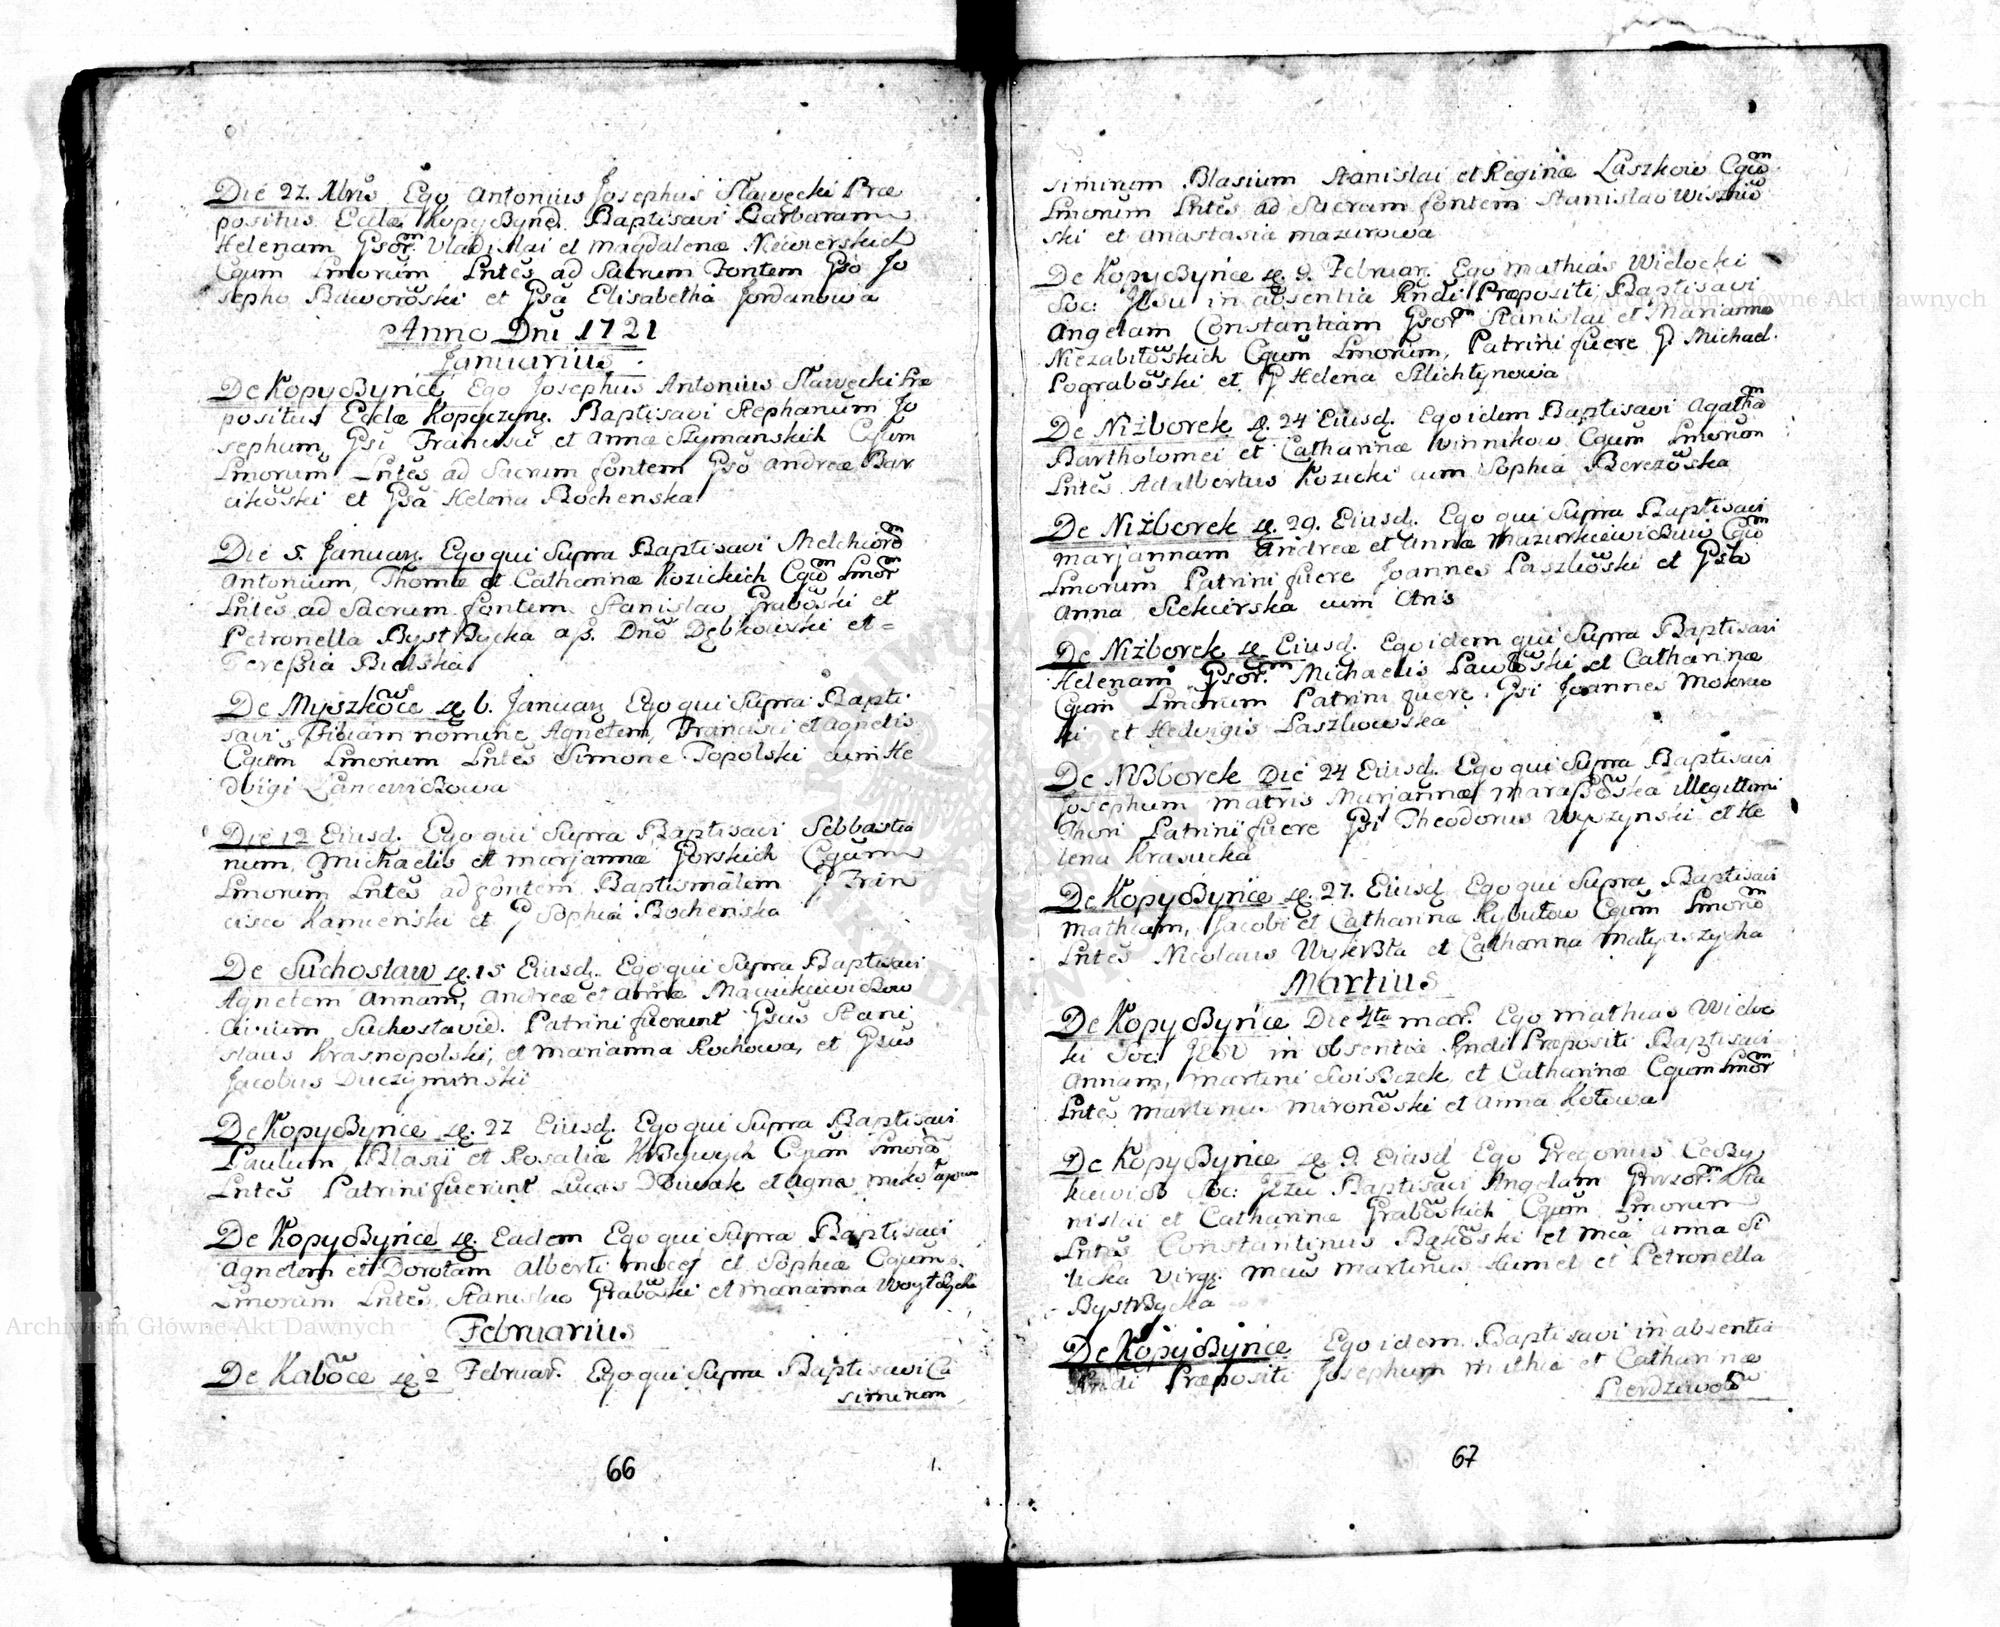 Die 27. Xbris Ego Antonius Josephus Sławęcki Præ
positus Eclæ KopyczYnẽ. Baptisavi Barbaram
Helenam Gsor̃m Vladislai et Magdalenæ Niewierskich
Cgum Lmorum Lntes ad Sacrum Fontem Gso Jo
sepho Baworõski et Gsa Elisabetha Jordanowa
Anno Dni 1721
Januarius
De Kopyczyńce Ego Josephus Antonius Sławęcki Præ
positus Eclæ Kopyczyn. Baptisavi Stephanum Jo
sephum, Gsi Francisci et Annæ Szymanskich Cgum
Lmorum Lntes ad Sacrum fontem Gso Andrea Bar
cikõski et Gsa Helena Bochenska
Die 5. Januar. Ego qui Supra Baptisavi Melchiorõ
Antonium, Thomæ et Catharinæ Kozickich Cgum Lmor
Lntes ad Sacrum fontem Stanislao Grabõski et
Petronella Bystrzycka aſs. Dnõ Dębkowski et=
Tereßia Bielska
De Myszkõce 6. Januar Ego qui Supra Bapti
savi Filiam nomine Agnetem, Francisci et Agnetis
Cgum Lmorum Lntes Simone Topolski cum He
dvigi Lancewiczowa
Die 12 Eiusd. Ego qui Supra Baptisavi Sebbastia
num, Michaelis et Marjannæ Gorskich Cgum
Lmorum Lntes ad fontem Baptismalem G Fran
cisco Kamieński et G Sophia Bocheńska
De Suchostaw 15 Eiusd. Ego qui Supra Baptisavi
Agnetem Annam, Andreæ et Annæ
Civium Suchostavie. Patrini fuerunt Gsus Stani
slaus Krasnopolski, et Marianna Rochowa, et Gsus
Jacobus Duczyminski
De Kopyczyńce 27 Eiusd. Ego qui Supra Baptisavi
Paulum, Blasii et Rosaliæ Cgum Lmorũ
Lntes Patrini fuerunt Lucas et Agna
De Kopyczyńce Eadem Ego qui Supra Baptisavi
Agnetem et Dorotam Alberti et Sophiæ Cgum
Lmorum Lntes, Stanislao Grabõski et Marianna
Februarius
De Kabõce 2 Februar. Ego qui Supra Baptisavi Ca
simirum
66
simirum Blasium Stanislai et Reginæ Laszkow Cgum
Lmorum Lntes ad Sacrum fontem Stanislao Wisznio
ski et Anastasia Mazurowa
De Kopyczyńce 9. Februar. Ego Mathias Widocki
Soc: JEsu in absentia Rndi Præpositi Baptisavi
Angelam Constantiam Gsorm Stanislai et Mariannæ
Niezabitõskich Cgum Lmorum, Patrini fuere G Michael.
Pograbõski et G Helena Szlichtynowa
De Niżborek 24 Eiusd. Ego idem Baptisavi Agatha
Bartholomei et Catharinæ Winnikow Cgum Lmorum
Lntes Adalbertus Kozicki cum Sophia Berezõska
De Niżborek 29. Eiusd. Ego qui Supra Baptisavi
Marjannam Andreæ et Annæ
Lmorum Patrini fuere Joannes Laszkõski et Gsa
Anna Siekierska cum Atris
De Niżborek Eiusd. Ego idem qui Supra Baptisavi
Helenam Gsorm. Michaelis Pawłõski et Catharinæ
Cgum Lmorum Patrini fuere Gsi Joannes Mokrzc
ki et Hedvigis Laszkowska
De Nizborek Die 24 Eiusd. Ego qui Supra Baptisavi
Josephum Matris Marjannæ illegittimi
Thori Patrini fuere Gsi Theodorus Wyszynski et He
lena Krasucka
De Kopyczyńce 27. Eiusd Ego qui Supra Baptisavi
Mathiam, Jacobi et Catharinæ Cgum Lmorũ
Lntes Nicolaus et Catharina
Martius
De Kopyczyńce Die 4ta Mar. Ego Mathias Widoc
ki Soc: JESU in absentia Rndi Præpositi Baptisavi
Annam, Martini et Catharinæ Cgum Lmor
Lntes Martinus Mironõski et Anna Kotowa
De Kopyczyńce 9. Eiusd Ego Gregorius
kiewicz Soc: JEzu Baptisavi Angelam Sta
nislai et Catharinæ Grabõskich Cgum Lmorum
Lntes Constantinus Bąkõski et Mca Anna Si
licka Virg. Martinus Humel et Petronella
Bystrzycka
De Kopyczyńce Ego idem Baptisavi in absentia
Rndi Præpositi Josephum Mathiæ et Catharinæ
67